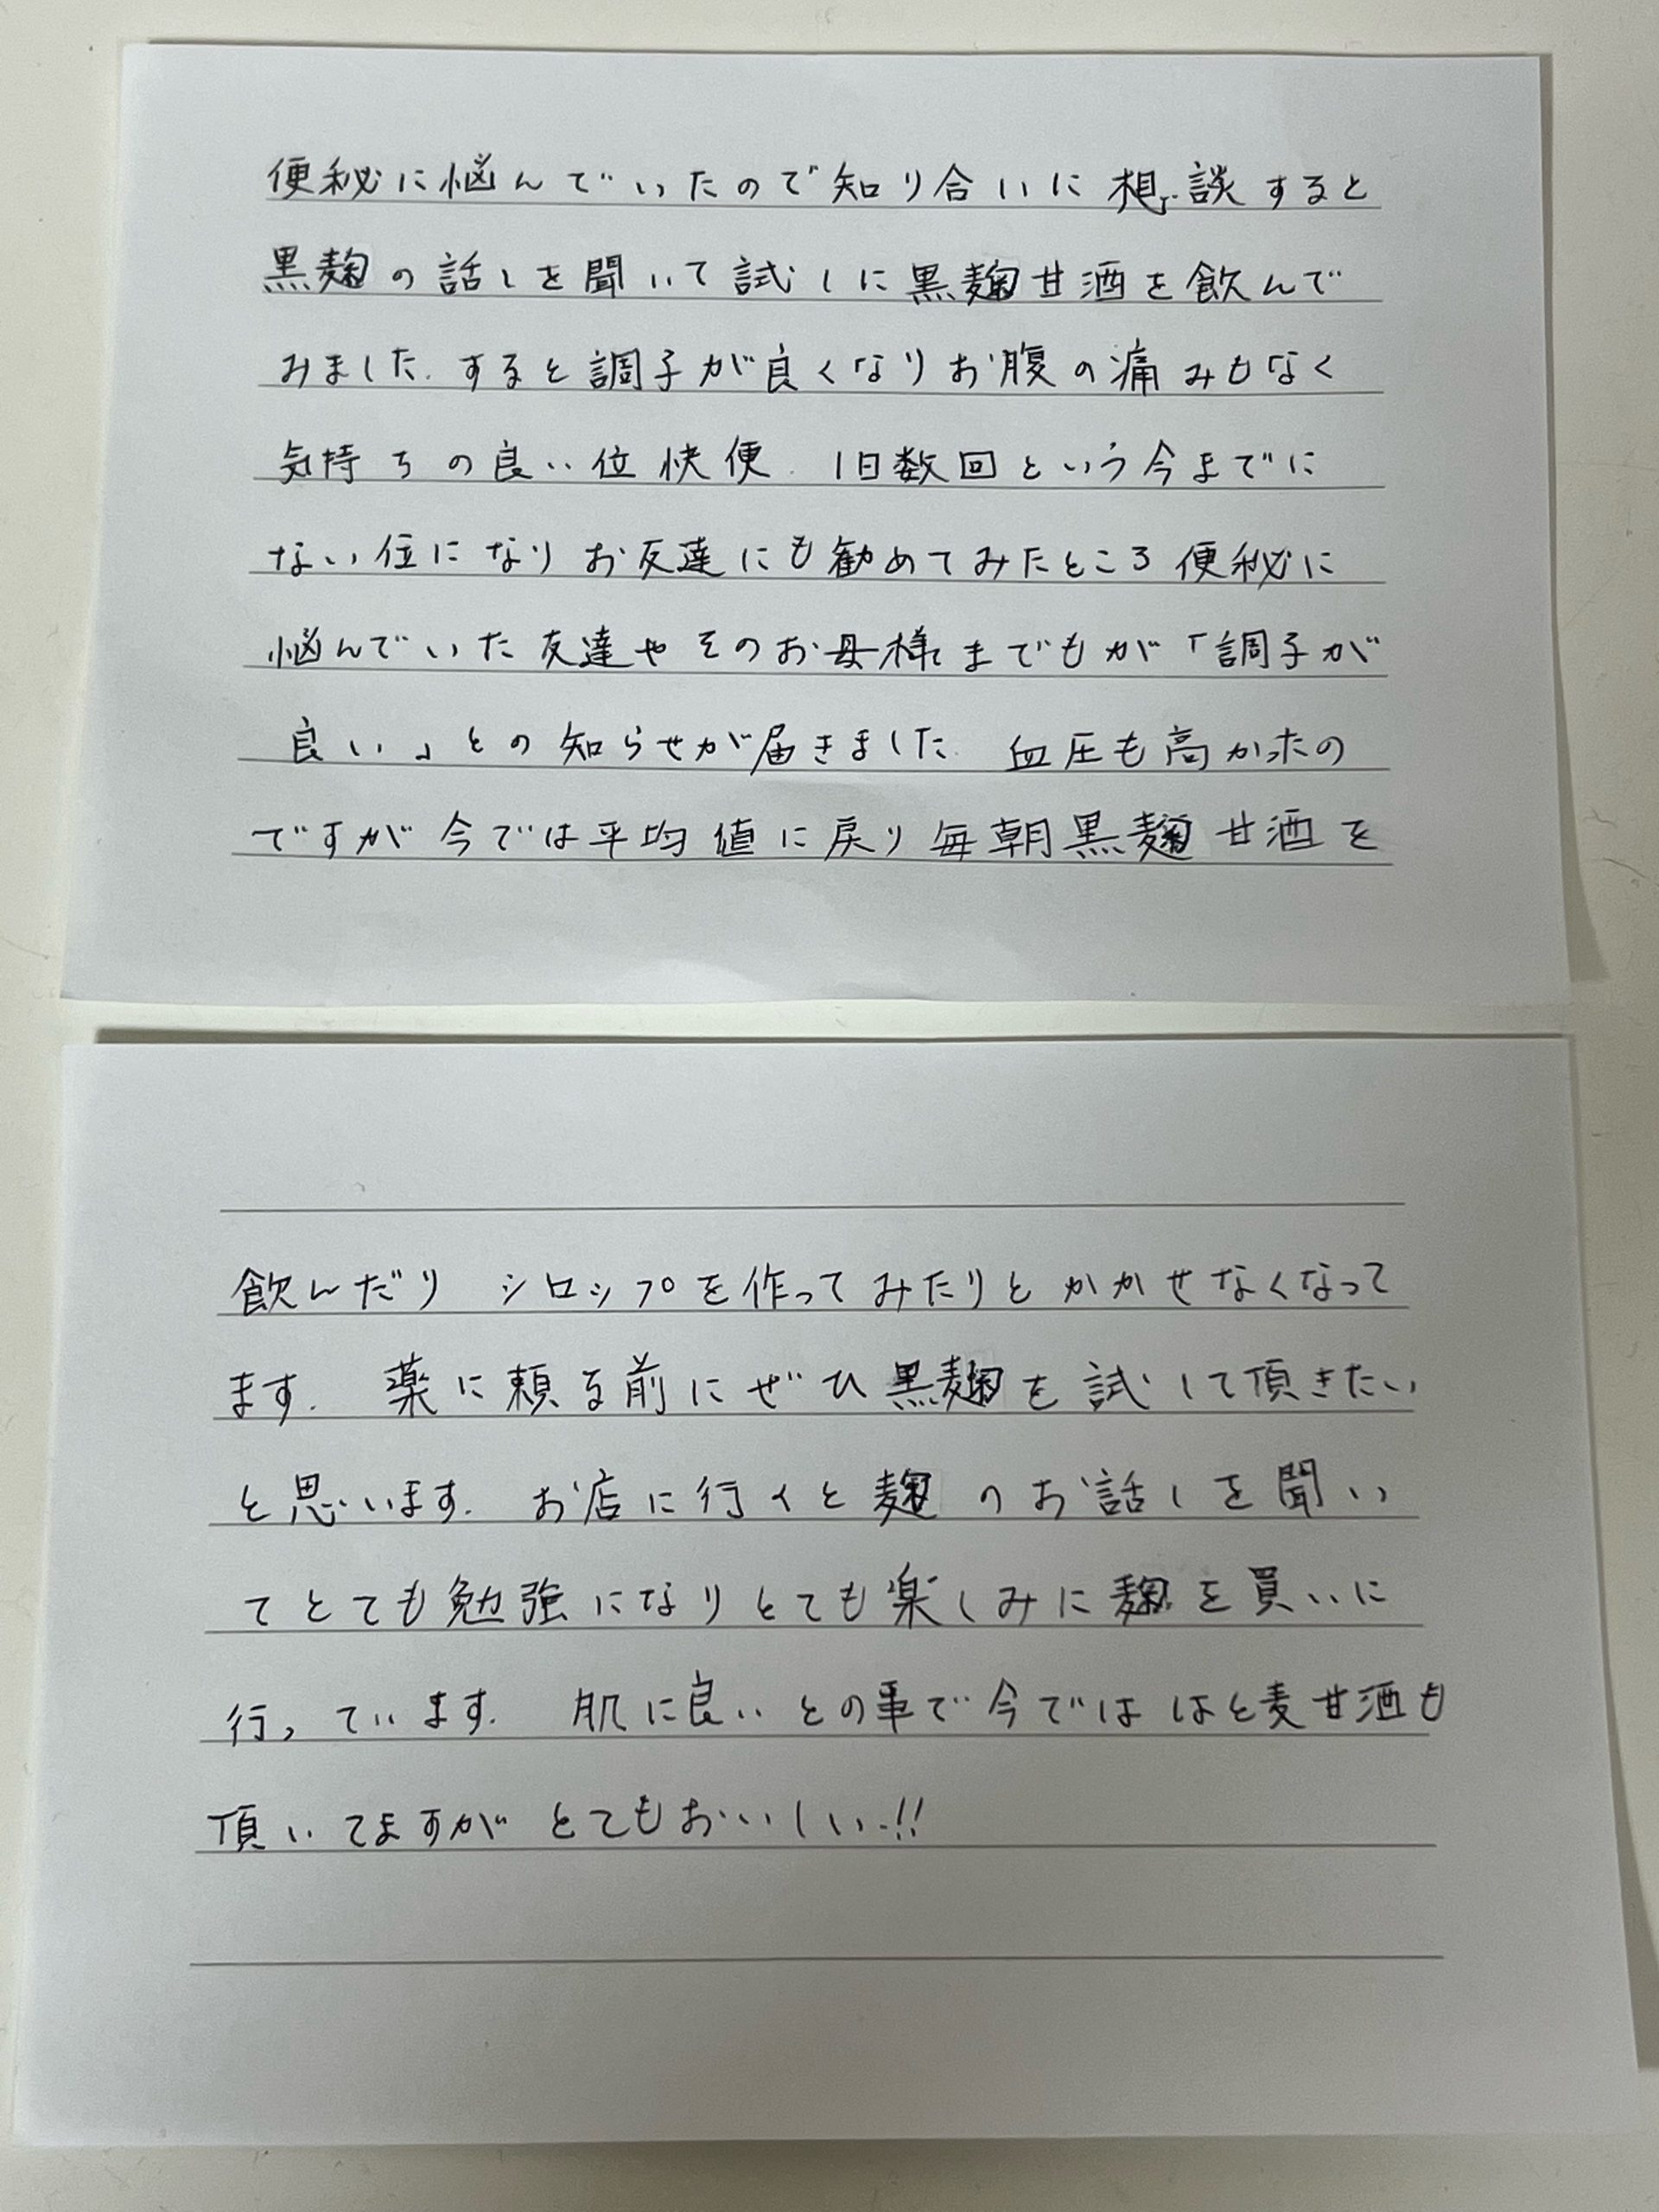 便秘に悩んでいたので知り合いに相談すると
黒麹の話しを聞いて試しに黒麹甘酒を飲んで
みました.すると調子が良くなりお腹の痛みもなく
気持ちの良い位快便.1日数回という今までに
ない位になりお友達にも勧めてみたところ便秘に
悩んでいた友達やそのお母様までもが「調子が
良い」との知らせが届きました.血圧も高かったの
ですが今では平均値に戻り毎朝黒麹甘酒を
飲んだり シロップを作ってみたりとかかせなくなって
ます. 薬に頼る前にぜひ黒麹を試して頂きたい
と思います. お店に行くと麹のお話しを聞い
てとても勉強になりとても楽しみに麹を買いに
行っています. 肌に良いとの事で今でははと麦甘酒も
頂いてますがとてもおいしい.!!